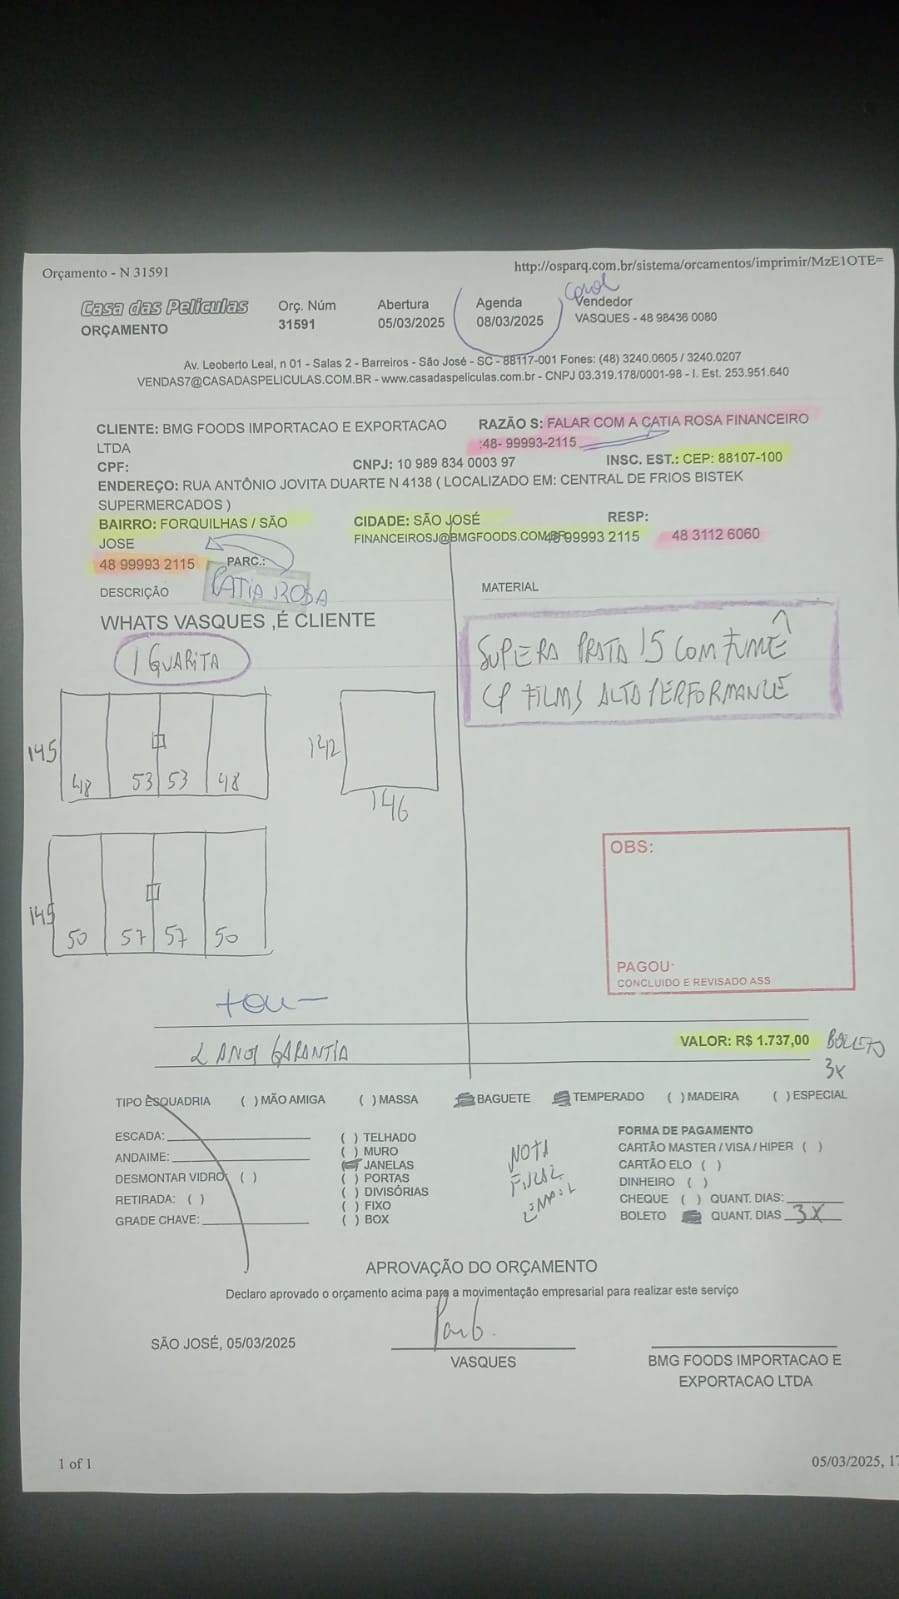 Orçamento - N 31591
http://osparq.com.br/sistema/orcamentos/imprimir/MzE1OTE=
Casa das Películas
ORÇAMENTO
Orç. Núm
31591
Abertura
05/03/2025
Agenda
08/03/2025
Vendedor
VASQUES - 48 98436 0080
Av. Leoberto Leal, n 01 - Salas 2 - Barreiros - São José - SC - 88117-001 Fones: (48) 3240.0605 / 3240.0207
VENDAS7@CASADASPELICULAS.COM.BR - www.casadaspeliculas.com.br - CNPJ 03.319.178/0001-98 - I. Est. 253.951.640
CLIENTE: BMG FOODS IMPORTACAO E EXPORTACAO
LTDA
RAZÃO S: FALAR COM A CATIA ROSA FINANCEIRO
:48- 99993-2115
CPF:
CNPJ: 10 989 834 0003 97
INSC. EST.: CEP: 88107-100
ENDEREÇO: RUA ANTÔNIO JOVITA DUARTE N 4138 ( LOCALIZADO EM: CENTRAL DE FRIOS BISTEK
SUPERMERCADOS )
BAIRRO: FORQUILHAS / SÃO
JOSE
CIDADE: SÃO JOSÉ
RESP:
FINANCEIROSJ@BMGFOODS.COM.BR
48 99993 2115
48 3112 6060
48 99993 2115
PARC.:
CATIA ROSA
DESCRIÇÃO
MATERIAL
WHATS VASQUES ,É CLIENTE
1 GUARITA
SUPERA PRATA 15 COM FUMÊ
CP FILMS ALTA PERFORMANCE
145
48 53 53 48
142
146
145
50 57 57 50
OBS:
PAGOU:
CONCLUIDO E REVISADO ASS
2 ANOS GARANTIA
VALOR: R$ 1.737,00
BOLETO
3X
TIPO ESQUADRIA ( ) MÃO AMIGA ( ) MASSA BAGUETE TEMPERADO ( ) MADEIRA ( ) ESPECIAL
ESCADA:
ANDAIME:
DESMONTAR VIDRO: ( )
RETIRADA: ( )
GRADE CHAVE:
( ) TELHADO
( ) MURO
JANELAS
( ) PORTAS
( ) DIVISÓRIAS
( ) FIXO
( ) BOX
NOTA
FISCAL
FORMA DE PAGAMENTO
CARTÃO MASTER / VISA / HIPER ( )
CARTÃO ELO ( )
DINHEIRO ( )
CHEQUE ( ) QUANT. DIAS:
BOLETO QUANT. DIAS 3X
APROVAÇÃO DO ORÇAMENTO
Declaro aprovado o orçamento acima para a movimentação empresarial para realizar este serviço
SÃO JOSÉ, 05/03/2025
VASQUES
BMG FOODS IMPORTACAO E
EXPORTACAO LTDA
1 of 1
05/03/2025, 17